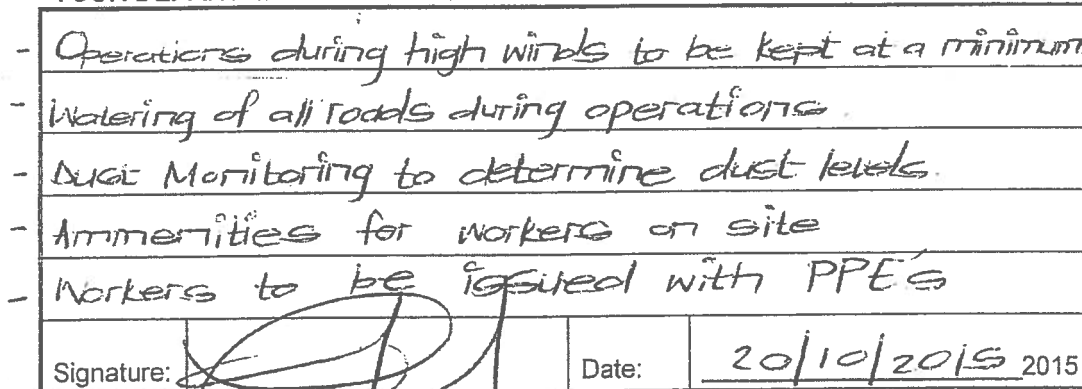 - Operations during high winds to be kept at a minimum
- Watering of all roads during operations
- Dust Monitoring to determine dust levels.
- Ammenities for workers on site
- Workers to be issued with PPE's
Signature: Date: 20/10/2015 2015